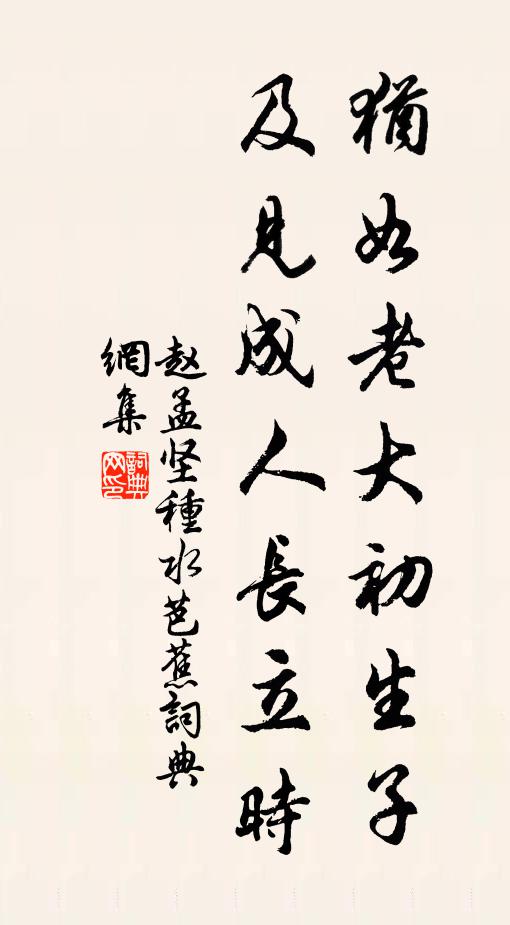 猶如老大初生子
及見成人長立時
赵孟坚種水芭蕉詞典
網集
詞典
网印